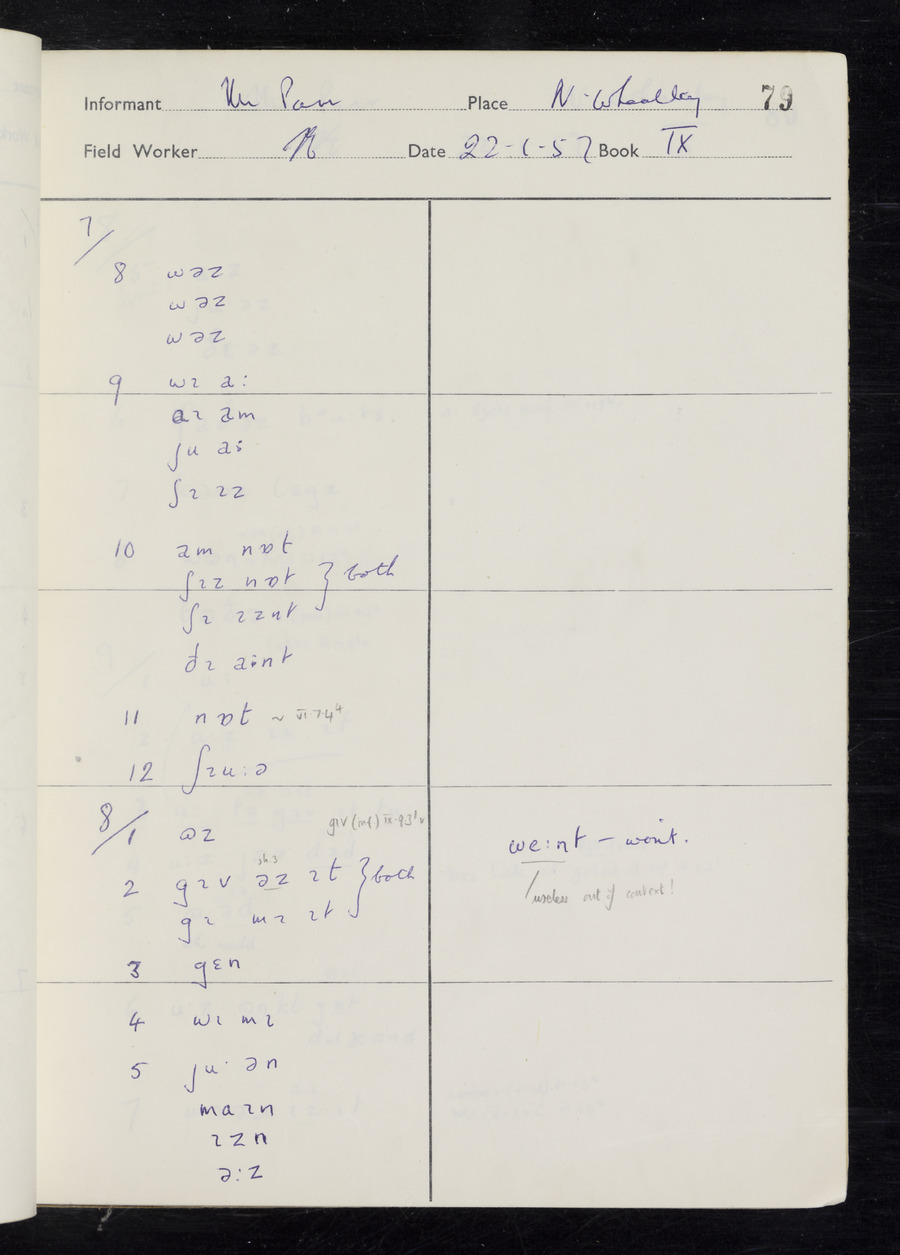 Informant Mr Parr Place N. Wheatley 79
Field Worker Date 22-1-57 Book IX
7/
8 wəz
wəz
wəz
9 wɪ a:
aɪ am
ju a:
ʃɪ ɪz
10 am nɒt
ʃɪz nɒt } both
ʃɪ ɪznt
ðɪ a:nt
11 nɒt ~ VI.7.4⁴
12 ʃɪu:ə
8/1 əz gɪv (inf.) IX.9.3
we:nt – won't.
sh 3
2 gɪv əz ɪt } both
useless out of context!
gɪ mɪ ɪt
3 gɛn
4 wɪ mɪ
5 ju· ən
maɪn
ɪzn
ə:z